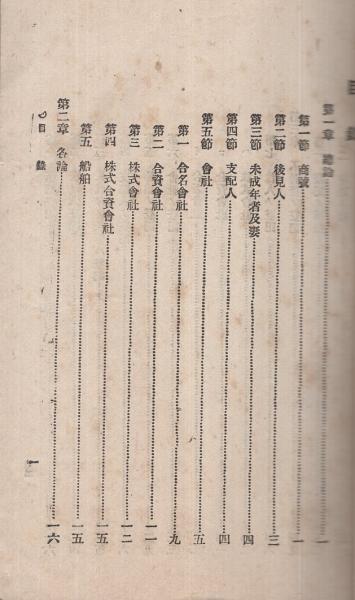 目錄
第一章 總論……一
第一節 商號……一
第二節 後見人……三
第三節 未成年者及妻……四
第四節 支配人……四
第五節 會社……五
第一 合名會社……九
第二 合資會社……一一
第三 株式會社……一二
第四 株式合資會社……一五
第五 船舶……一五
第二章 各論……一六
目錄
一